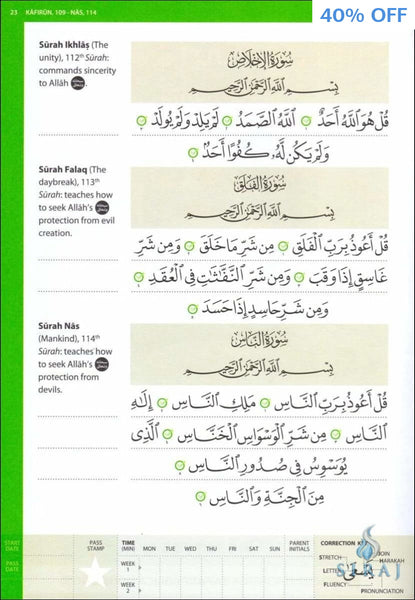 23 KĀFIRŪN, 109 - NĀS, 114
40% OFF
Sūrah Ikhlāṣ (The
unity), 112th Sūrah:
commands sincerity
to Allāh
سُورَةُ الإِخْلَاصِ
بِسْمِ ٱللَّهِ ٱلرَّحْمَٰنِ ٱلرَّحِيمِ
قُلْ هُوَ ٱللَّهُ أَحَدٌ ۝ ٱللَّهُ ٱلصَّمَدُ ۝ لَمْ يَلِدْ وَلَمْ يُولَدْ ۝
وَلَمْ يَكُن لَّهُۥ كُفُوًا أَحَدٌۢ ۝
Sūrah Falaq (The
daybreak), 113th
Sūrah: teaches how
to seek Allāh's
protection from evil
creation.
سُورَةُ الفَلَقِ
بِسْمِ ٱللَّهِ ٱلرَّحْمَٰنِ ٱلرَّحِيمِ
قُلْ أَعُوذُ بِرَبِّ ٱلْفَلَقِ ۝ مِن شَرِّ مَا خَلَقَ ۝ وَمِن شَرِّ
غَاسِقٍ إِذَا وَقَبَ ۝ وَمِن شَرِّ ٱلنَّفَّٰثَٰتِ فِى ٱلْعُقَدِ ۝
وَمِن شَرِّ حَاسِدٍ إِذَا حَسَدَ ۝
Sūrah Nās
(Mankind), 114th
Sūrah: teaches how
to seek Allāh's
protection from
devils.
سُورَةُ النَّاسِ
بِسْمِ ٱللَّهِ ٱلرَّحْمَٰنِ ٱلرَّحِيمِ
قُلْ أَعُوذُ بِرَبِّ ٱلنَّاسِ ۝ مَلِكِ ٱلنَّاسِ ۝ إِلَٰهِ
ٱلنَّاسِ ۝ مِن شَرِّ ٱلْوَسْوَاسِ ٱلْخَنَّاسِ ۝ ٱلَّذِى
يُوَسْوِسُ فِى صُدُورِ ٱلنَّاسِ ۝
مِنَ ٱلْجِنَّةِ وَٱلنَّاسِ ۝
START DATE
PASS DATE
PASS STAMP
TIME (MIN) MON TUE WED THU FRI SAT SUN PARENT INITIALS
WEEK 1
WEEK 2
CORRECTION KEY
STRETCH
JOIN
HARAKAH
LETTER
FLUENCY
PRONUNCIATION
SIRAJ